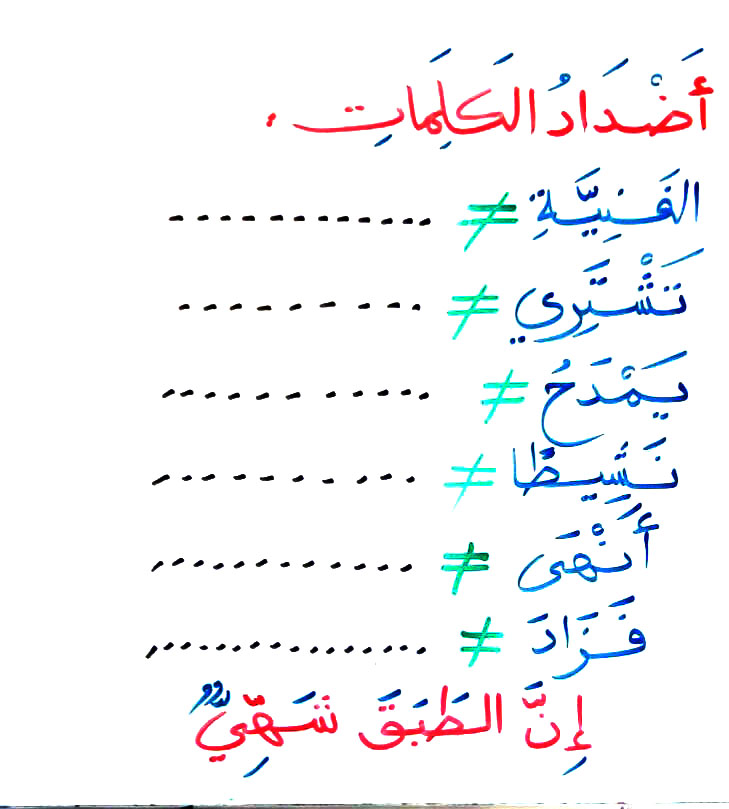 أَضْدَادُ الكَلِمَاتِ .
الغَنِيَّةِ ≠ ............
تَشْتَرِي ≠ ..........
يَمْدَحُ ≠ ..........
نَشِيطًا ≠ ..........
أَنْهَى ≠ ............
فَزَادَ ≠ ................
إِنَّ الطَبَقَ شَهِيٌّ